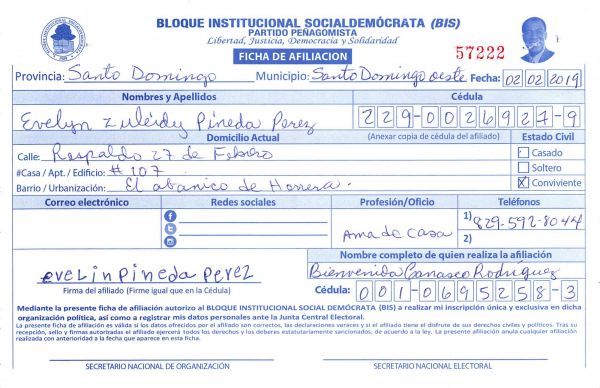 BLOQUE INSTITUCIONAL SOCIALDEMÓCRATA (BIS)
PARTIDO PEÑAGOMISTA
Libertad, Justicia, Democracia y Solidaridad
FICHA DE AFILIACION
57222
Provincia: Santo Domingo Municipio: Santo Domingo oeste Fecha: 02 02 2019
Nombres y Apellidos Cédula
Evelyn Zuleidy Pineda Perez 229-0026927-9
Domicilio Actual (Anexar copia de cédula del afiliado) Estado Civil
Calle: Respaldo 27 de Febrero Casado
#Casa / Apt. / Edificio: # 107 Soltero
Barrio / Urbanización: El abanico de Herrera. X Conviviente
Correo electrónico Redes sociales Profesión/Oficio Teléfonos
Ama de casa 1) 829-592-8044
2)
Nombre completo de quien realiza la afiliación
evelin pineda perez Bienvenida Rodríguez
Firma del afiliado (Firme igual que en la Cédula) Cédula: 001-0695258-3
Mediante la presente ficha de afiliación autorizo al BLOQUE INSTITUCIONAL SOCIAL DEMÓCRATA (BIS) a realizar mi inscripción única y exclusiva en dicha
organización política, así como a registrar mis datos personales ante la Junta Central Electoral.
La presente ficha de afiliación es válida si los datos ofrecidos por el afiliado son correctos, las declaraciones veraces y si el afiliado tiene el disfrute de sus derechos civiles y políticos. Tras su
recepción, sello y firmas autorizadas el afiliado ejercerá todos los derechos y los deberes estatutariamente sancionados, de acuerdo a la ley. La presente afiliación anula cualquier afiliación
realizada con anterioridad a la fecha que aparece en esta ficha.
SECRETARIO NACIONAL DE ORGANIZACIÓN SECRETARIO NACIONAL ELECTORAL